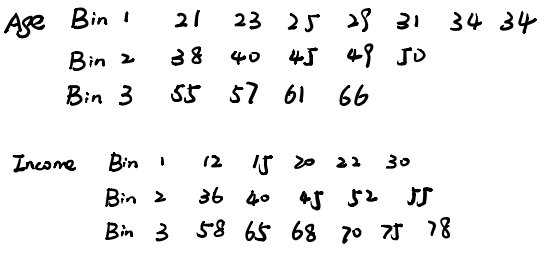 Age Bin 1 21 23 25 29 31 34 34
Bin 2 38 40 45 49 50
Bin 3 55 57 61 66
Income Bin 1 12 15 20 22 30
Bin 2 36 40 45 52 55
Bin 3 58 65 68 70 75 78